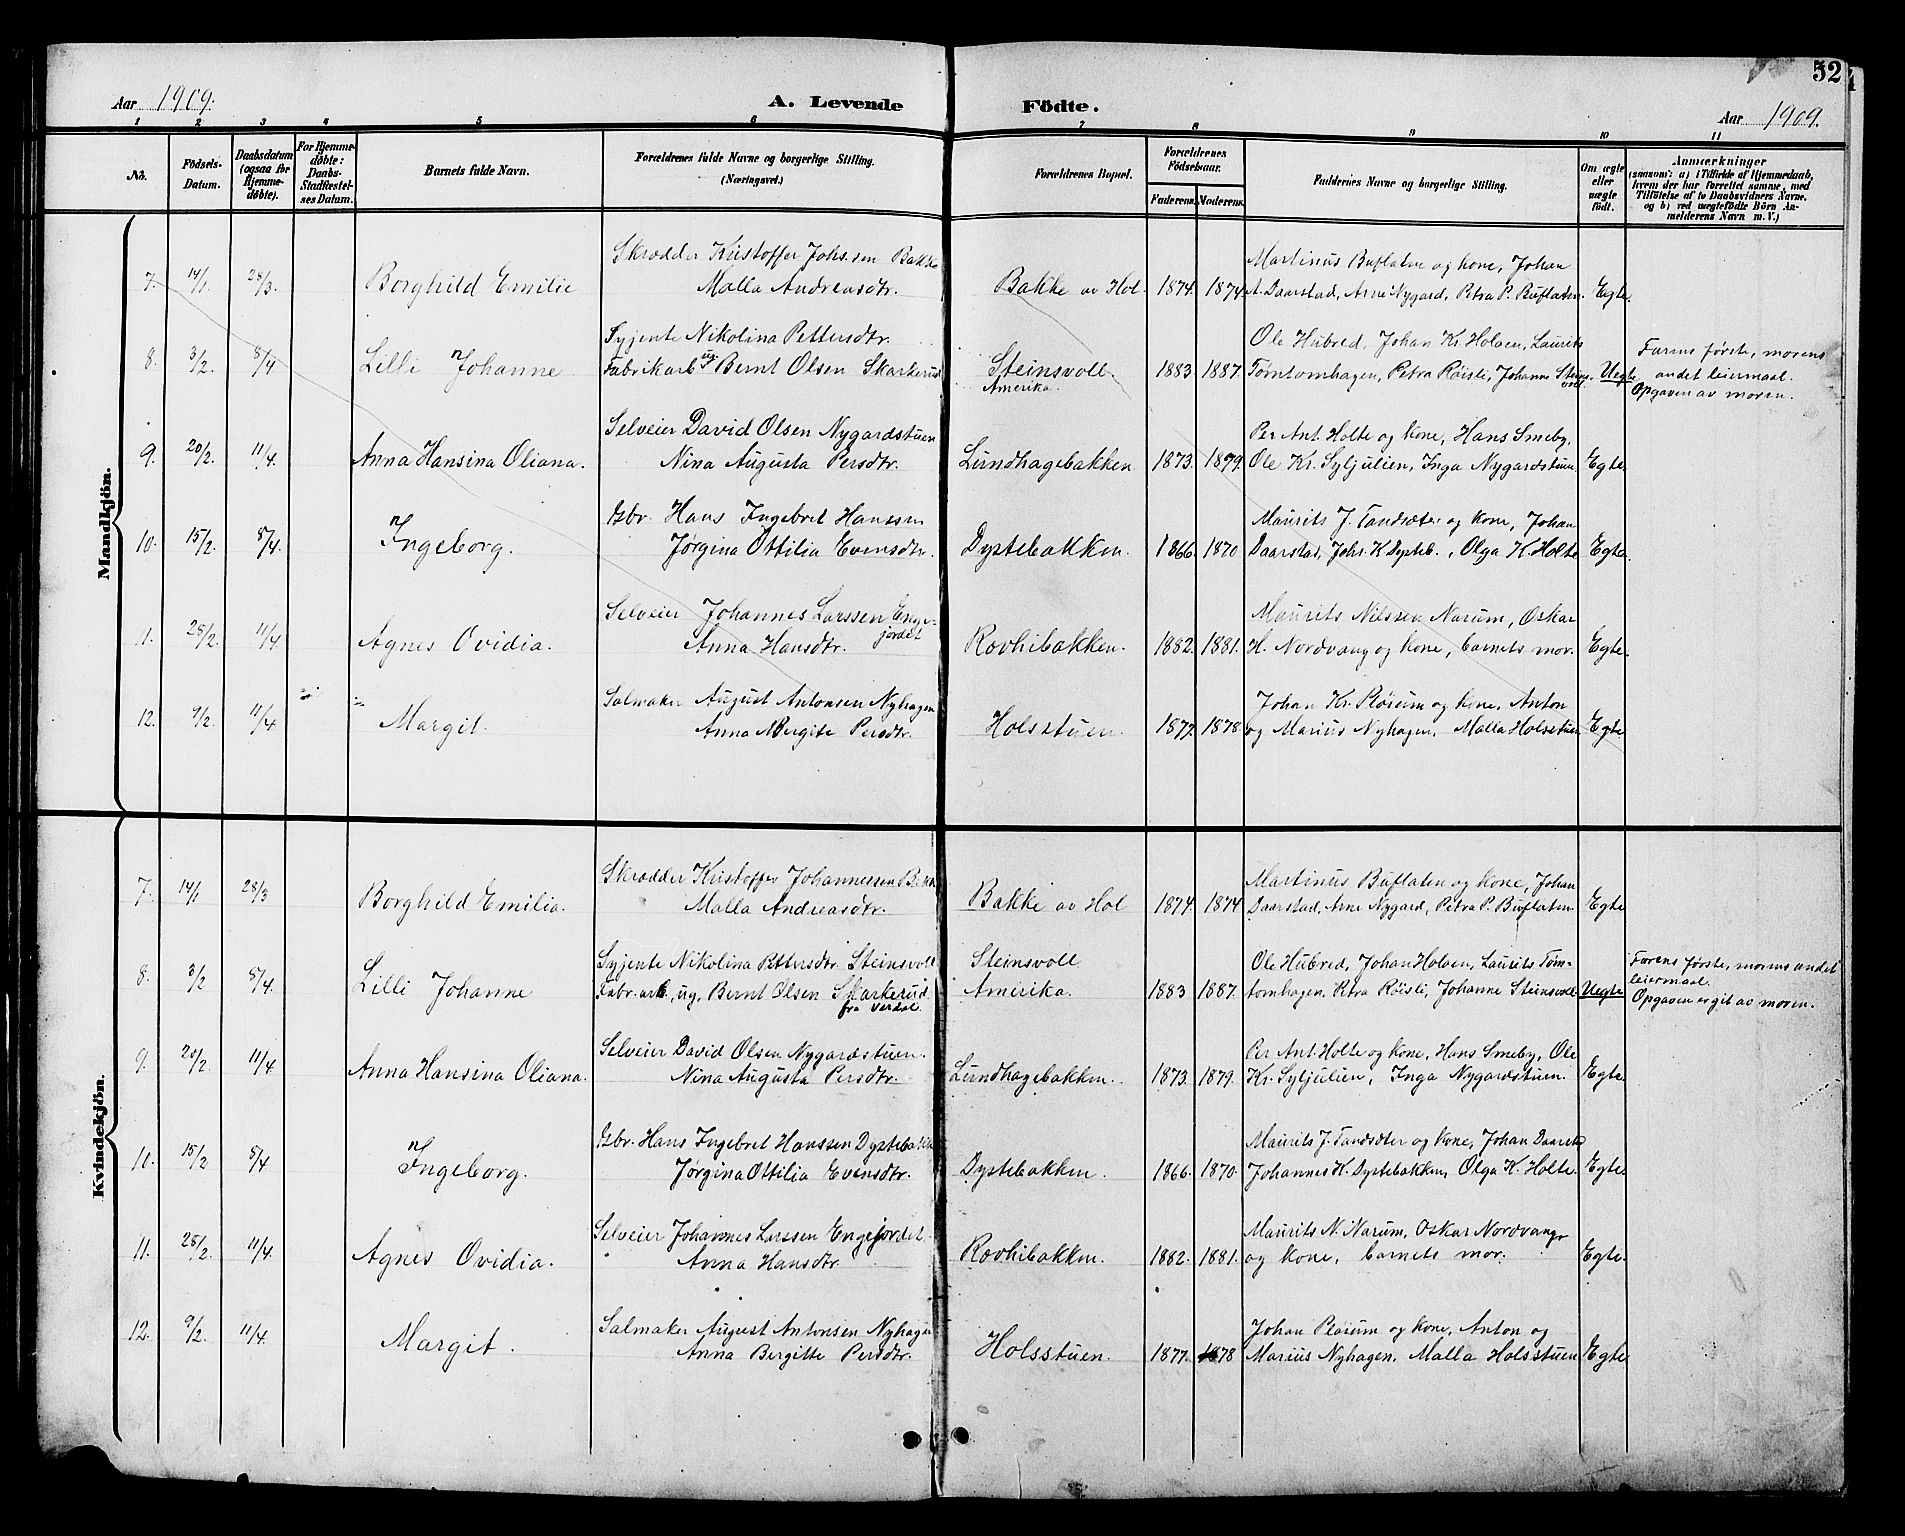 52
Aar 1909.
A. Levende
Födte.
Aar 1909.
1 2 3 4 5 6 7 8 9 10 11
No.
Födsels-
Datum.
Daabsdatum
(ogsaa for
Hjemme-
döbte).
For Hjemme-
döbte:
Daabs-
Stadfæstel-
ses Datum.
Barnets fulde Navn.
Forældrenes fulde Navne og borgerlige Stilling.
(Næringsvei.)
Forældrenes Bopæl.
Forældrenes
Födselsaar.
Faderens. Moderens.
Faddernes Navne og borgerlige Stilling.
Om ægte
eller
uægte
født.
Anmærkninger
(saasom: a) i Tilfælde af Hjemmedaab,
hvem der har forrettet samme, med
Tilföielse af to Daabsvidners Navne,
og b) ved uægtefödte Börn An-
melderens Navn m. V.)
Mandkjön.
Skrædder Kristoffer Johs.sen Bakke
Martinus Buflaten og kone, Johan
7. 14/1 28/3 Borghild Emilie Malla Andreasdtr. Bakke av Hol. 1874. 1874 A. Daarstad, Arne Nygard, Petra P. Buflaten. Egte.
Syjente Nikolina Pettersdtr.
Ole Hubred, Johan Kr. Holsen, Laurits
Farens første, morens
8. 3/2. 8/4 Lilli Johanne Fabrikarb ug Bernt Olsen Skarkerud Steinsvoll. 1883 1887. Tømtomhagen, Petra Røisli, Johanne Steins- Uegte
Amerika.
voll.
andet leiermaal.
Opgaven av moren.
Selveier David Olsen Nygardstuen
Per Ant. Holte og kone, Hans Smeby,
9. 20/2. 11/4. Anna Hansina Oliana. Nina Augusta Persdtr. Lundhagebakken 1873. 1879. Ole Kr. Syljulien, Inga Nygardstuen Egte
Gbr. Hans Ingebret Hanssen
Maurits J. Tandsæter og kone, Johan
10. 15/2. 8/4. Ingeborg. Jørgina Ottilia Evensdtr. Dystebakken. 1866. 1870 Daarstad, Johs. K. Dysteb., Olga K. Holte Egte.
Selveier Johannes Larssen Enge-
jordet
Maurits Nilssen Narum, Oskar
11. 28/2. 11/4 Agnes Ovidia. Anna Hansdtr. Rovhibakken. 1882. 1881. H. Nordvang og kone, barnets mor. Egte.
Salmaker August Antonsen Nyhagen
Johan Kr. Pløium og kone, Anton
12. 9/2. 11/4 Margit. Anna Bergite Persdtr. Holsstuen. 1877. 1878 og Marius Nyhagen, Malla Holsstuen Egte
Kvindekjön.
Skrædder Kristoffer Johannessen Bakke
Martinus Buflaten og kone, Johan
7. 14/1 28/3 Borghild Emilia. Malla Andreasdtr. Bakke av Hol 1874. 1874 Daarstad, Arne Nygard, Petra P. Buflaten. Egte
Syjente Nikolina Pettersdtr Steinsvoll
Steinsvoll.
Ole Hubred, Johan Holsen, Laurits Tøm-
Farens første, morens andet
8. 3/2 8/4. Lilli Johanne Fabr.arb., ug. Bernt Olsen Skarkerud Amerika. 1883 1887. tomhagen, Petra Røisli, Johanne Steinsvoll Uegte
fra Verdal
leiermaal.
Opgaven er git av moren.
Selveier David Olsen Nygardstuen.
Per Ant. Holte og kone, Hans Smeby, Ole
9. 20/2 11/4 Anna Hansina Oliana. Nina Augusta Persdtr. Lundhagebakken. 1873. 1879. Kr. Syljulien, Inga Nygardstuen. Egte.
Gbr. Hans Ingebret Hanssen Dystebakke
Maurits J. Tandsæter og kone, Johan Daarsta
10. 15/2 8/4 Ingeborg. Jørgina Ottilia Evensdtr. Dystebakken. 1866. 1870 Johannes K. Dystebakken, Olga K. Holte. Egte.
Selveier Johannes Larssen Engejordet.
Maurits N. Narum, Oskar Nordvang
11. 28/2. 11/4. Agnes Ovidia. Anna Hansdtr. Rovhibakken. 1882. 1881. og kone, barnets mor. Egte.
Salmaker August Antonsen Nyhagen
Johan Pløium og kone, Anton og
12. 9/2 11/4. Margit. Anna Bergitte Persdtr. Holsstuen. 1877. 1878 Marius Nyhagen, Malla Holsstuen Egte